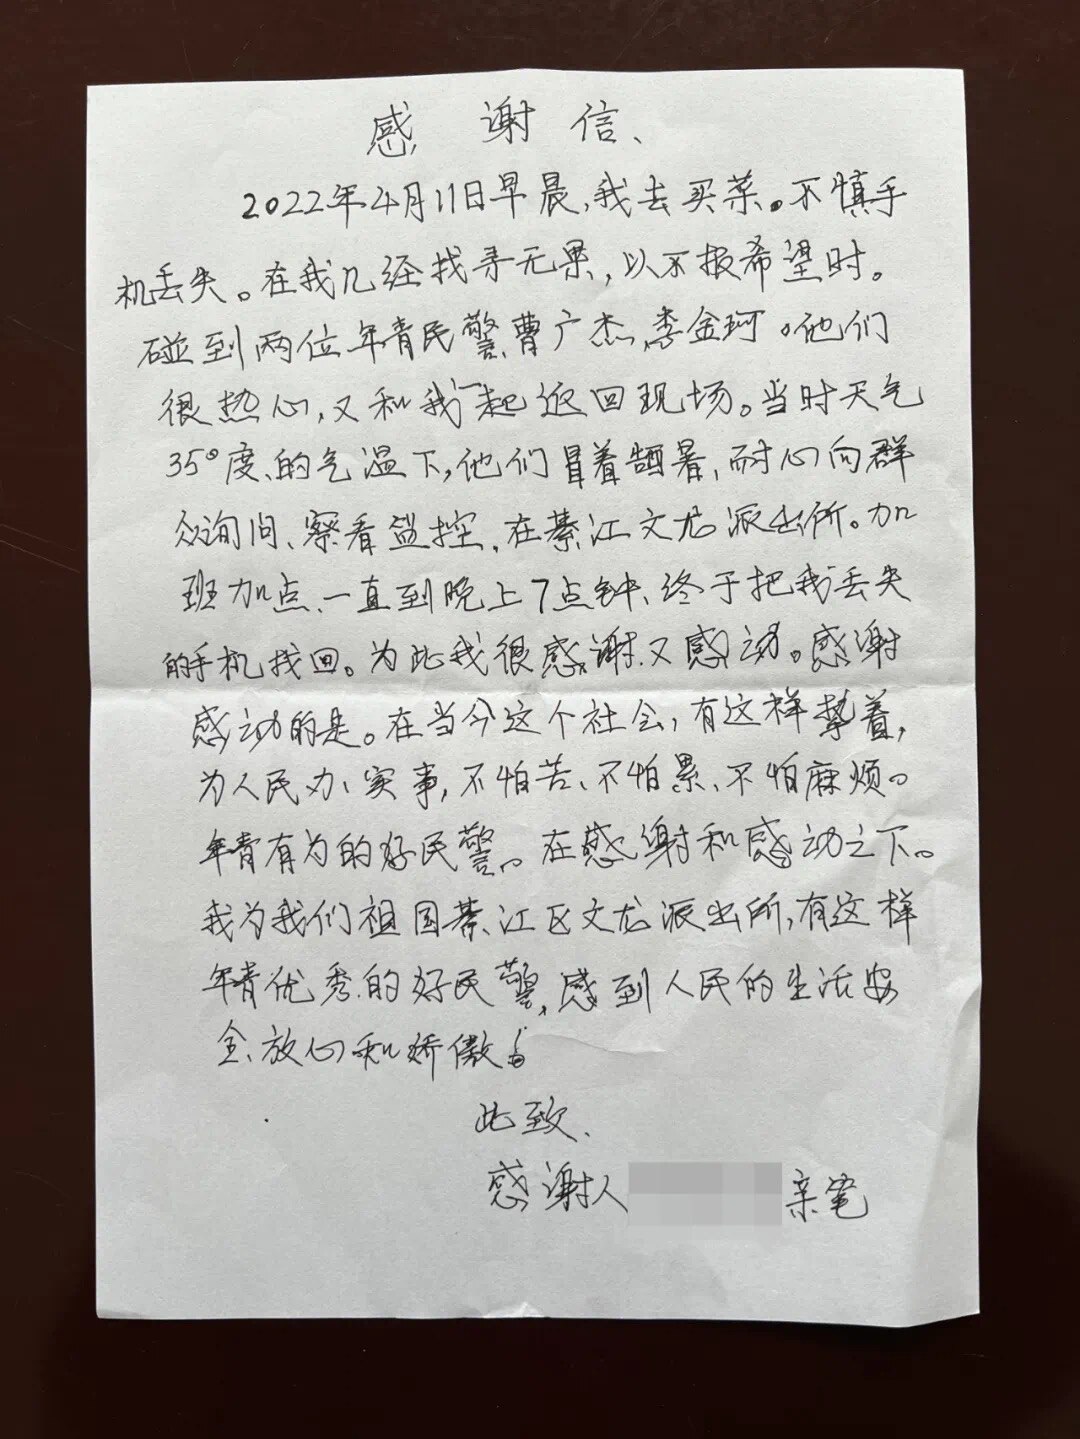 感谢信、
2022年4月11日早晨,我去买菜。不慎手
机丢失。在我几经找寻无果,以不报希望时。
碰到两位年青民警曹广杰,李金珂。他们
很热心,又和我一起返回现场。当时天气
35°度、的气温下,他们冒着酷暑,耐心向群
众询问、察看监控,在綦江文龙派出所。加
班加点、一直到晚上7点钟、终于把我丢失
的手机找回。为此我很感谢又感动。感谢
感动的是。在当今这个社会,有这样挚着,
为人民办实事,不怕苦、不怕累、不怕麻烦。
年青有为的好民警。在感谢和感动之下。
我为我们祖国綦江区文龙派出所,有这样
年青优秀的好民警,感到人民的生活安
全、放心和娇傲。
此致、
感谢人 亲笔